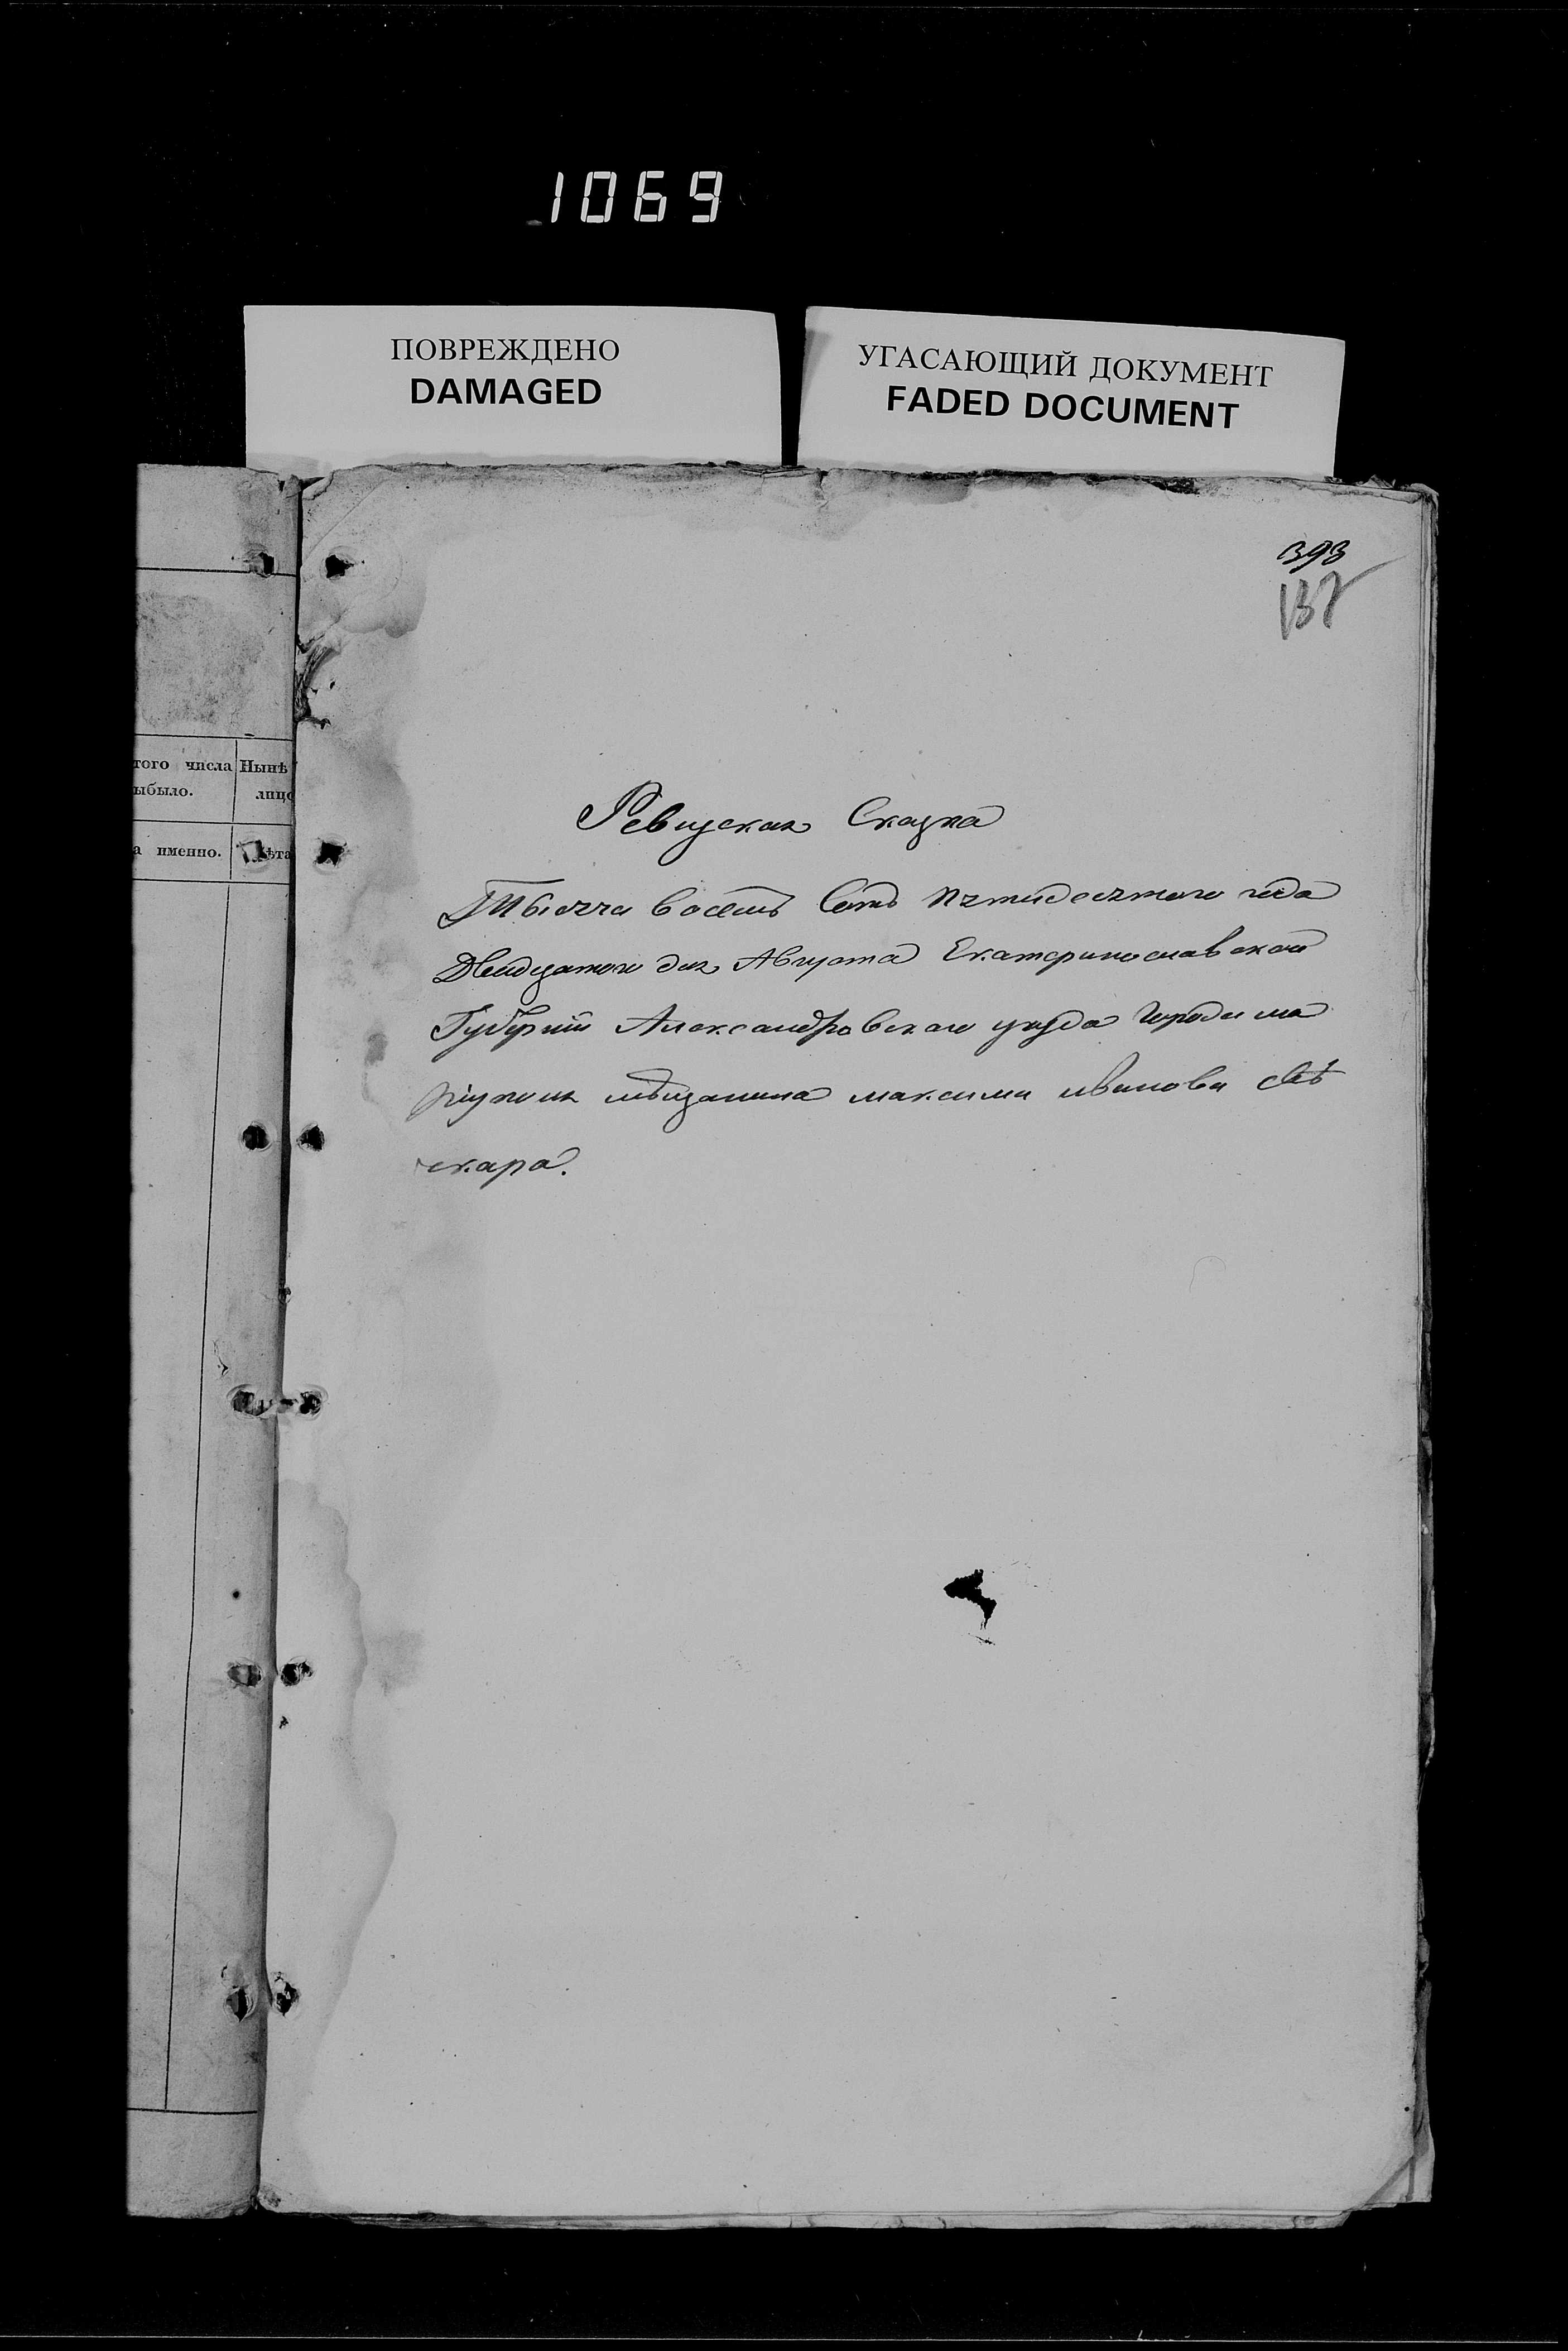 1069
ПОВРЕЖДЕНО
DAMAGED
УГАСАЮЩИЙ ДОКУМЕНТ
FADED DOCUMENT
393
137
того числа
ыбыло.
а именно.
Нынѣ
лицо
Лѣта
Ревизская Сказка
Тысяча восемь Сотъ Пятидесятого года
Двадцатого дня Августа Екатеринославской
Губерніи Александровского уезда Города Ма
ріуполя мѣщанина максима иванова Свѣ
чкара.